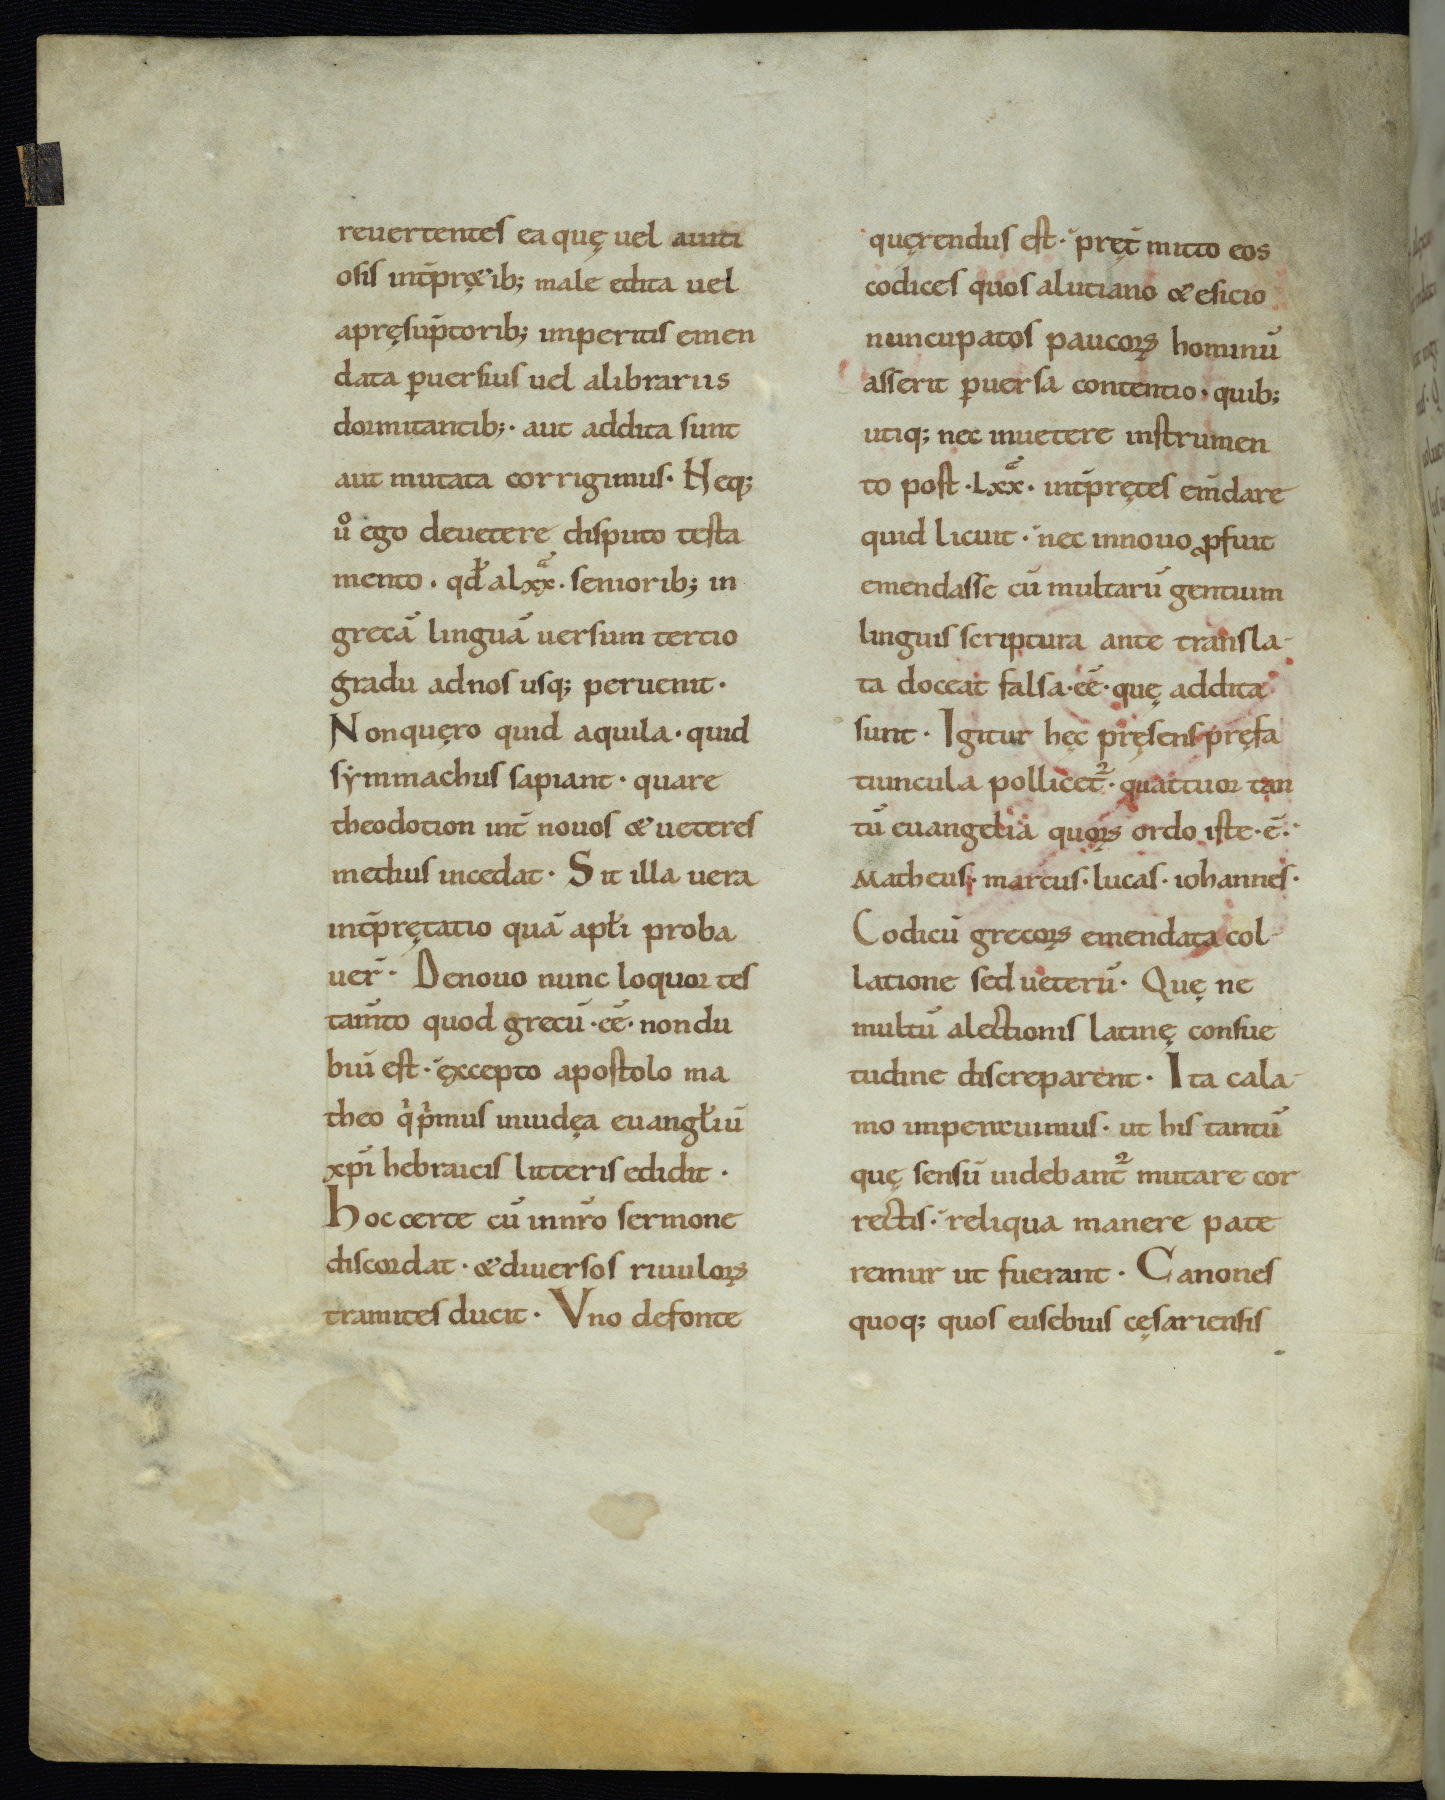 reuertentes ea quę uel auiti
osis int̄pręt&ib; male edita uel
apręsūptorib; imperitis emen
data ꝑuersius uel alibrariis
dormitantib;· aut addita sunt
aut mutata corrigimus· Neq;
uͦ ego deuetere disputo testa
mento · qđ alxx̄· seniorib; in
grecā linguā uersum tertio
gradu adnos usq; peruenit·
Nonquęro quid aquila· quid
sẏmmachus sapiant· quare
theodotion int̄ nouos &ueteres
medius incedat· Sit illa uera
int̄prętatio quā apłi proba
uer̄· Denouo nunc loquor tes
tam̄to quod grecū ·eē· nondu
biū est· excepto apostolo ma
theo qͥ pͥmus iniudęa euangłiū
xp̄i hebraicis litteris edidit ·
Hoc certe cū innr̄o sermone
discordat· &diuersos riuuloꝝ
tramites ducit· Vno defonte
quęrendus est· pręt̄ mitto eos
codices quos alutiano &esicio
nuncupatos paucoꝝ hominū
asserit ꝑuersa contentio· quib;
utiq; nec inuetere instrumen
to post ·Lxx̄· int̄prętes em̄dare
quid licuit · nec innouo ꝓfuit
emendasse cū multarū gentium
linguis scriptura ante transla-
ta doceat falsa·eē· quę addita
sunt· Igitur hęc pręsens pręfa
tiuncula pollicet᷑· quattuor tan
tū euangelia quoꝝ ordo iste·ē·
Matheus· marcus· lucas· iohannes·
Codicū grecoꝝ emendata col-
latione sed ueterū· Quę ne
multū alectionis latinę consue
tudine discreparent· Ita cala-
mo imperauimus· ut his tantū
quę sensū uidebant᷑ mutare cor
rectis· reliqua manere pate
remur ut fuerant· Canones
quoq; quos eusebius cęsariensis